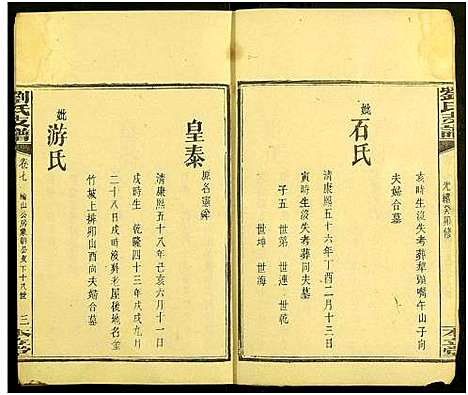 劉氏支譜
光緒癸卯修
亥時生沒失考葬犁頭嘴午山子向
夫婦合墓
妣石氏
清康熙五十六年丁酉二月十三日
寅時生沒失考葬同夫墓
子五 世第 世連 世乾
世坤 世海
皇泰
清康熙五十八年己亥六月十一日
戌時生 乾隆四十三年戊戌九月
二十八日戌時沒葬老屋後地名金
竹坡上排卯山酉向夫婦合墓
妣游氏
劉氏支譜
卷七
三